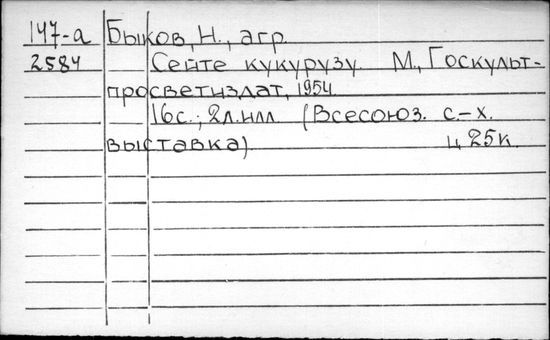 147-а Быков, Н., агр.
2584 Сейте кукурузу. М., Госкульт-
просветиздат, 1954.
16с.; 2л.илл (Всесоюз. с.-х.
выставка). ц 25к.